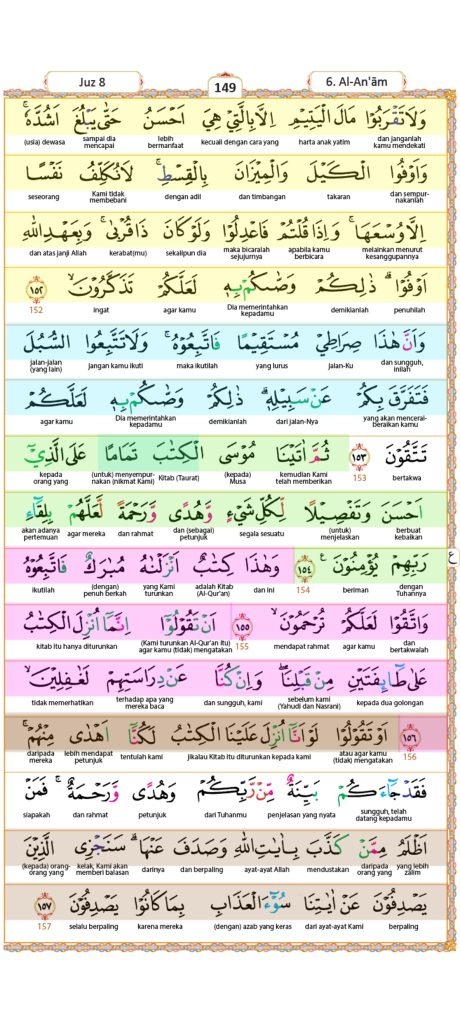 Juz 8 149 6. Al-An'ām
وَلَا تَقْرَبُوْا مَالَ الْيَتِيْمِ اِلَّا بِالَّتِيْ هِيَ اَحْسَنُ حَتّٰى يَبْلُغَ اَشُدَّهٗ ۚ
dan janganlah kamu mendekati harta anak yatim kecuali dengan cara yang lebih bermanfaat sampai dia mencapai (usia) dewasa
وَاَوْفُوا الْكَيْلَ وَالْمِيْزَانَ بِالْقِسْطِ ۚ لَا نُكَلِّفُ نَفْسًا
dan sempurnakanlah takaran dan timbangan dengan adil Kami tidak membebani seseorang
اِلَّا وُسْعَهَا ۚ وَاِذَا قُلْتُمْ فَاعْدِلُوْا وَلَوْ كَانَ ذَا قُرْبٰى ۚ وَبِعَهْدِ اللّٰهِ
melainkan menurut kesanggupannya apabila kamu berbicara maka bicaralah sejujurnya sekalipun dia kerabat(mu) dan atas janji Allah
اَوْفُوْا ۗ ذٰلِكُمْ وَصّٰىكُمْ بِهٖ لَعَلَّكُمْ تَذَكَّرُوْنَ ۙ ١٥٢
penuhilah demikianlah Dia memerintahkan kepadamu agar kamu ingat 152
وَاَنَّ هٰذَا صِرَاطِيْ مُسْتَقِيْمًا فَاتَّبِعُوْهُ ۚ وَلَا تَتَّبِعُوا السُّبُلَ
dan sungguh, inilah jalan-Ku yang lurus maka ikutilah jangan kamu ikuti jalan-jalan (yang lain)
فَتَفَرَّقَ بِكُمْ عَنْ سَبِيْلِهٖ ۗ ذٰلِكُمْ وَصّٰىكُمْ بِهٖ لَعَلَّكُمْ
yang akan mencerai-beraikan kamu dari jalan-Nya demikianlah Dia memerintahkan kepadamu agar kamu
تَتَّقُوْنَ ١٥٣ ثُمَّ اٰتَيْنَا مُوْسَى الْكِتٰبَ تَمَامًا عَلَى الَّذِيْٓ
bertakwa 153 kemudian Kami telah memberikan (kepada) Musa Kitab (Taurat) (untuk) menyempurnakan (nikmat Kami) kepada orang yang
اَحْسَنَ وَتَفْصِيْلًا لِّكُلِّ شَيْءٍ وَّهُدًى وَّرَحْمَةً لَّعَلَّهُمْ بِلِقَاۤءِ
berbuat kebaikan (untuk) menjelaskan segala sesuatu dan (sebagai) petunjuk dan rahmat agar mereka akan adanya pertemuan
رَبِّهِمْ يُؤْمِنُوْنَ ࣖ ١٥٤ وَهٰذَا كِتٰبٌ اَنْزَلْنٰهُ مُبٰرَكٌ فَاتَّبِعُوْهُ
dengan Tuhannya beriman 154 dan ini adalah Kitab (Al-Qur'an) yang Kami turunkan (dengan) penuh berkah ikutilah
وَاتَّقُوْا لَعَلَّكُمْ تُرْحَمُوْنَ ۙ ١٥٥ اَنْ تَقُوْلُوْٓا اِنَّمَآ اُنْزِلَ الْكِتٰبُ
dan bertakwalah agar kamu mendapat rahmat 155 (Kami turunkan Al-Qur'an itu) agar kamu (tidak) mengatakan kitab itu hanya diturunkan
عَلٰى طَاۤىِٕفَتَيْنِ مِنْ قَبْلِنَاۖ وَاِنْ كُنَّا عَنْ دِرَاسَتِهِمْ لَغٰفِلِيْنَ ۙ
kepada dua golongan sebelum kami (Yahudi dan Nasrani) dan sungguh, kami terhadap apa yang mereka baca tidak memerhatikan
١٥٦ اَوْ تَقُوْلُوْا لَوْ اَنَّآ اُنْزِلَ عَلَيْنَا الْكِتٰبُ لَكُنَّآ اَهْدٰى مِنْهُمْ ۚ
156 atau agar kamu (tidak) mengatakan Jikalau Kitab itu diturunkan kepada kami tentulah kami lebih mendapat petunjuk daripada mereka
فَقَدْ جَاۤءَكُمْ بَيِّنَةٌ مِّنْ رَّبِّكُمْ وَهُدًى وَّرَحْمَةٌ ۚ فَمَنْ
sungguh, telah datang kepadamu penjelasan yang nyata dari Tuhanmu petunjuk dan rahmat siapakah
اَظْلَمُ مِمَّنْ كَذَّبَ بِاٰيٰتِ اللّٰهِ وَصَدَفَ عَنْهَا ۗ سَنَجْزِى الَّذِيْنَ
yang lebih zalim daripada orang yang mendustakan ayat-ayat Allah dan berpaling darinya kelak, Kami akan memberi balasan (kepada) orang-orang yang
يَصْدِفُوْنَ عَنْ اٰيٰتِنَا سُوْۤءَ الْعَذَابِ بِمَا كَانُوْا يَصْدِفُوْنَ ١٥٧
berpaling dari ayat-ayat Kami (dengan) azab yang keras karena mereka selalu berpaling 157
ع